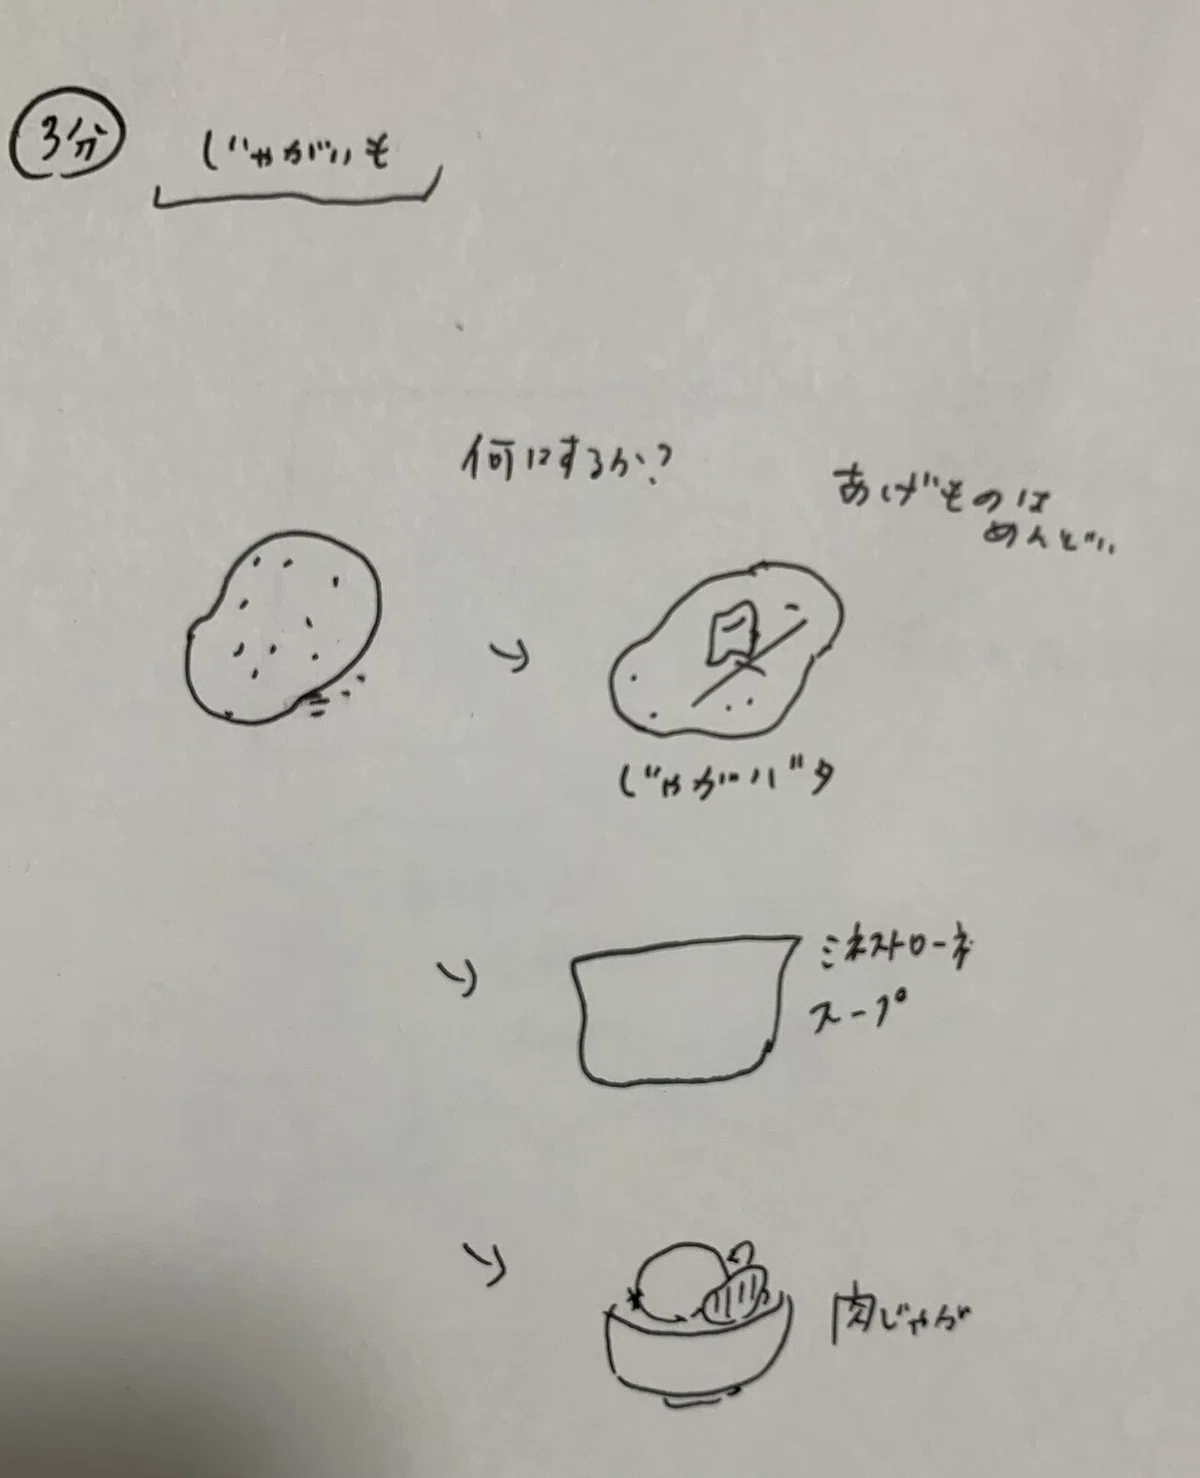 3分
じゃがいも
何にするか?
あげものは
めんどい
じゃがバタ
ミネストローネ
スープ
肉じゃが